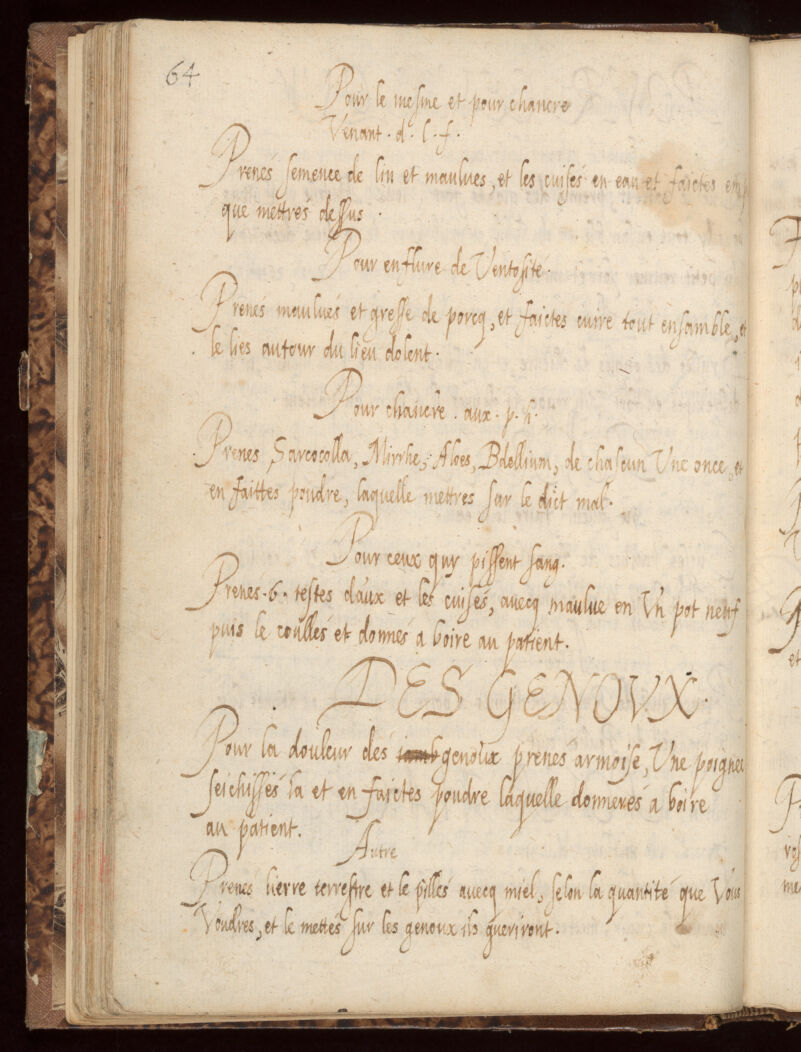 64
Pour le mesme et pour chancre
Venant . d . l . f .
Prenés semence de lin et maulues, et les cuisés en eau et faictes
que mettrés dessus .
Pour enflure de Ventosité .
Prenés maulués et gresse de porcq, et faictes cuire tout ensamble, et
le liés autour du lieu dolent .
Pour chancre . aux . p . h .
Prenes Sarcocolla, Mirrhe, Aloes, Bdellium, de chascun Vne once, et
en faittes poudre, laquelle mettres sur le dict mal .
Pour ceux quy pissent sang .
Prenes . 6 . testes d'aux et les cuisés, auecq maulue en Vn pot neuf
puis le coullés et donnés a boire au patient .
DES GENOVX .
Pour la douleur des genoux prenés armoise, Vne poignee
seichissés la et en faictes poudre laquelle donnerés a boire
au patient .
Autre
Prenés lierre terrestre et le pillés auecq miel, selon la quantité que Vous
Voudres, et le mettés sur les genoux ils gueriront .